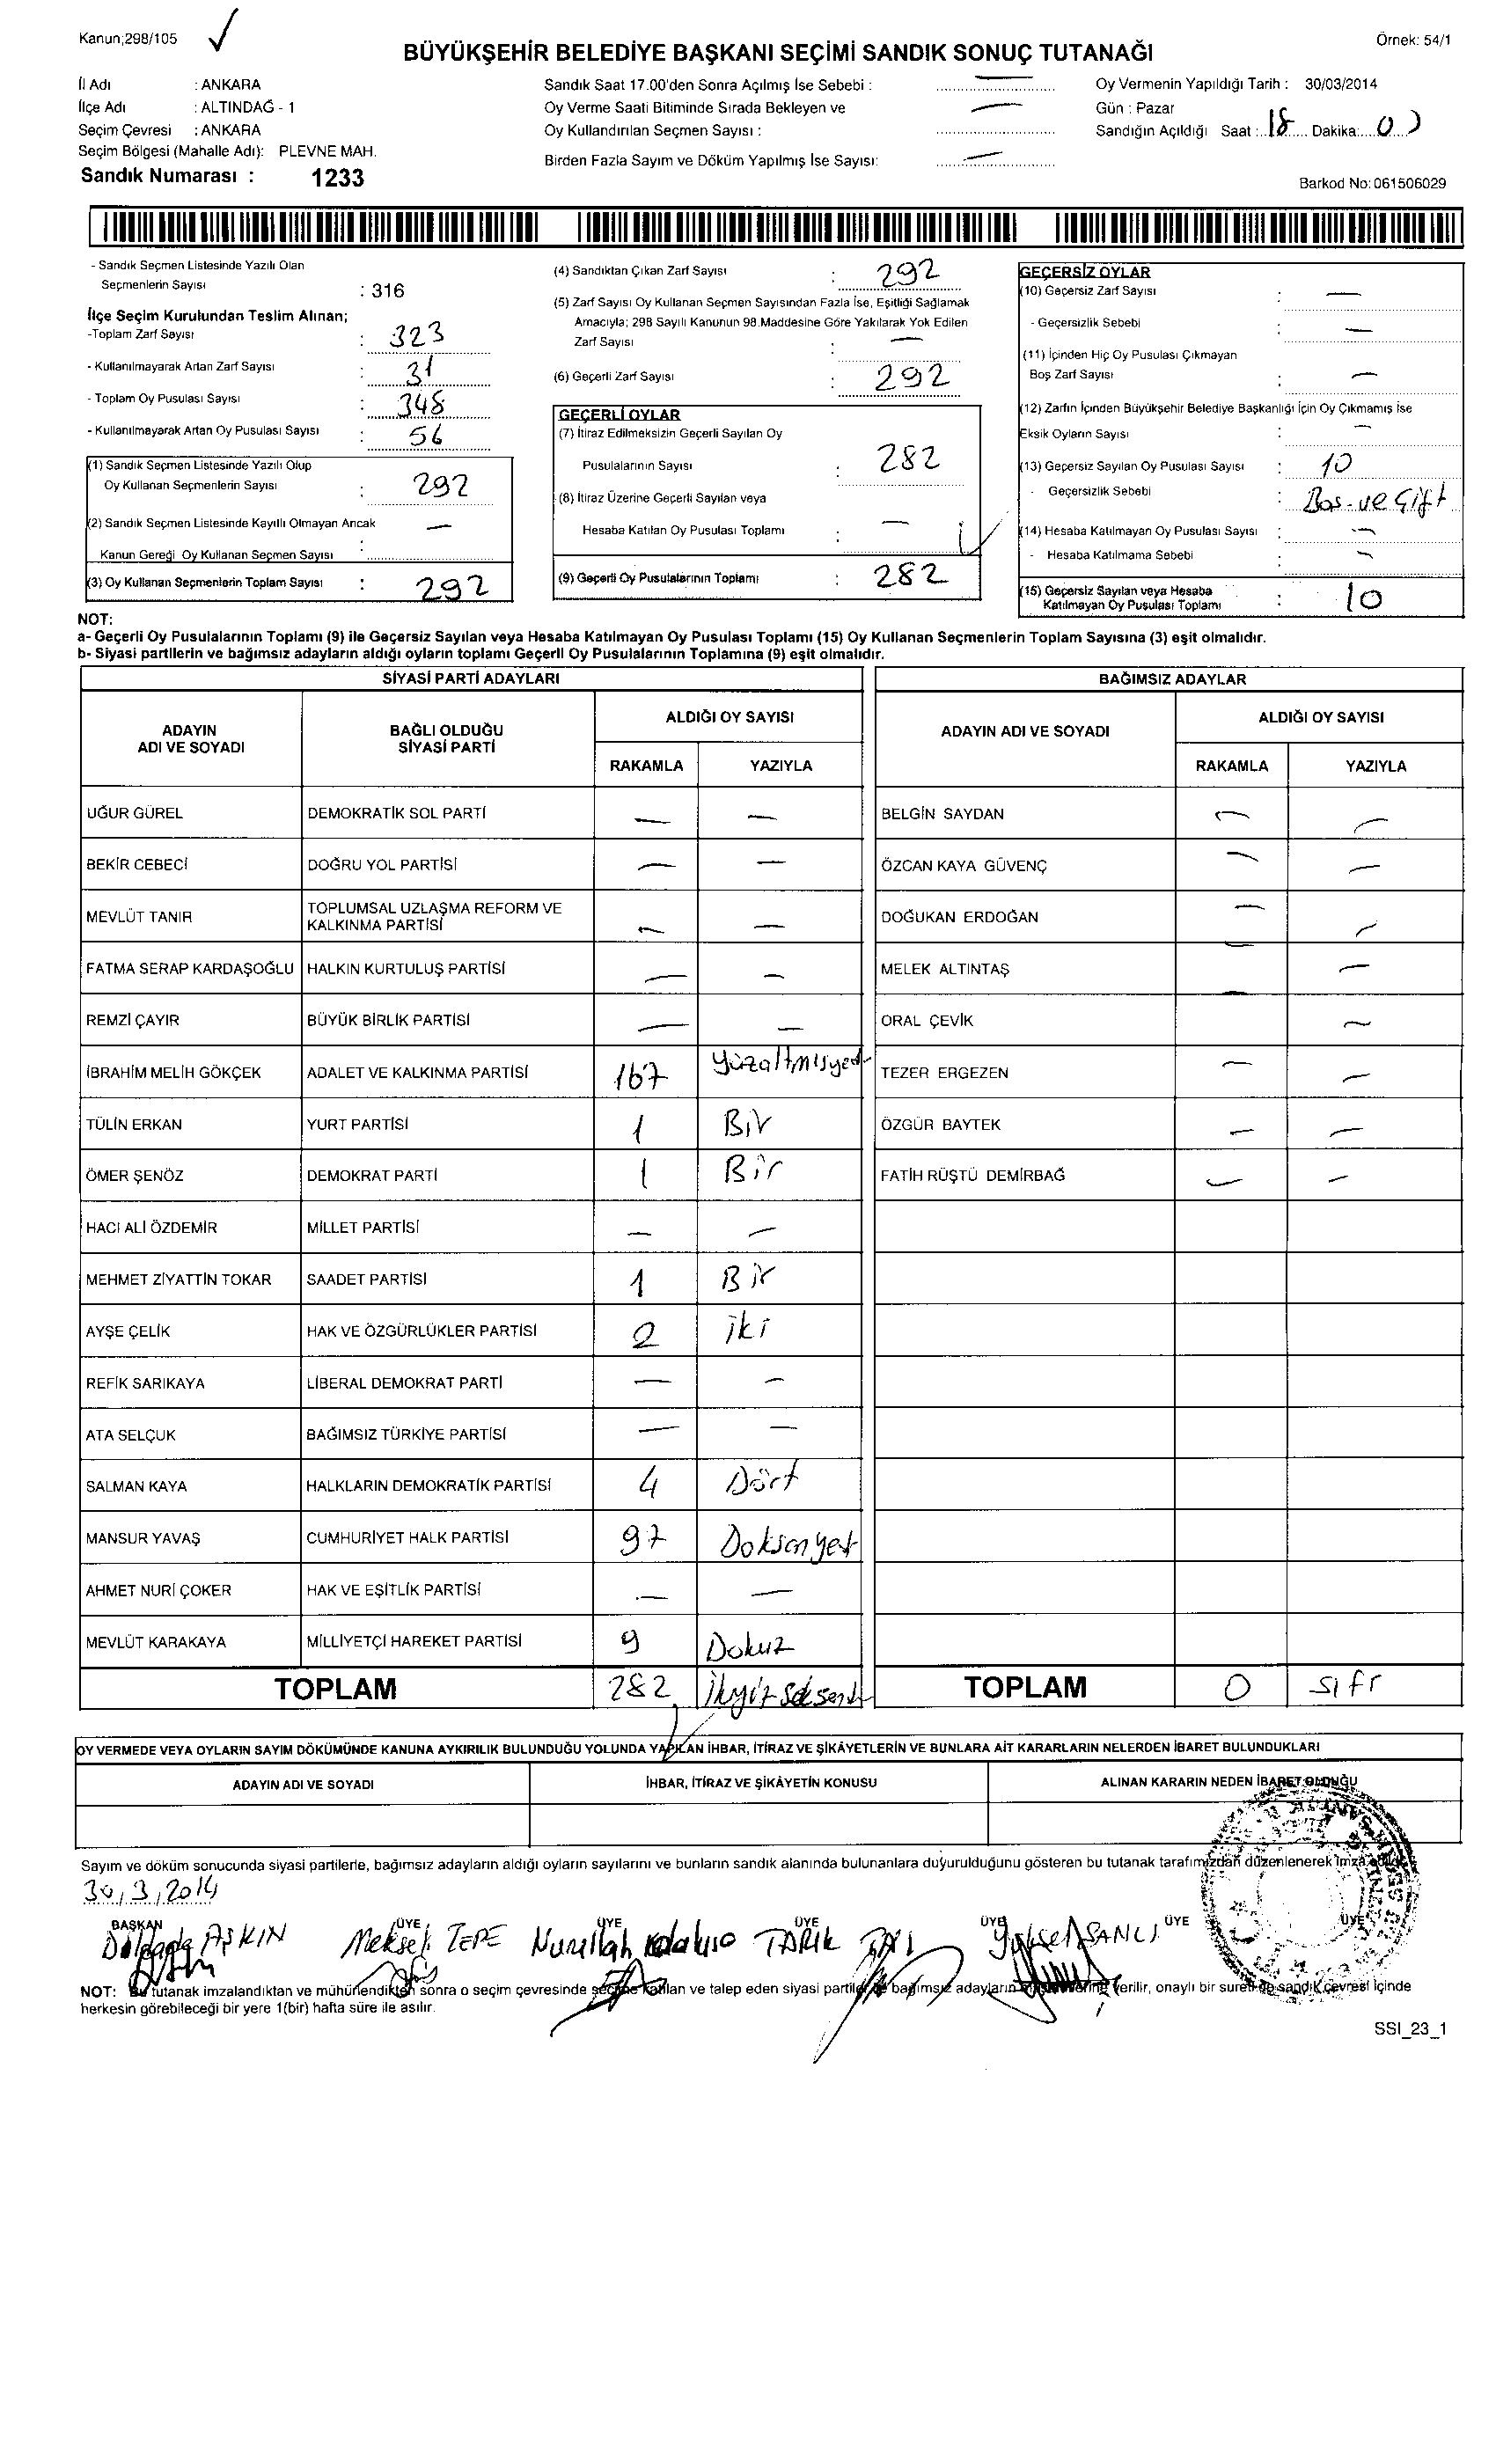 Kanun;298/105
Örnek: 54/1
BÜYÜKŞEHİR BELEDİYE BAŞKANI SEÇİMİ SANDIK SONUÇ TUTANAĞI
İl Adı : ANKARA
İlçe Adı : ALTINDAĞ - 1
Seçim Çevresi : ANKARA
Seçim Bölgesi (Mahalle Adı): PLEVNE MAH.
Sandık Numarası : 1233
Sandık Saat 17.00'den Sonra Açılmış İse Sebebi : —
Oy Verme Saati Bitiminde Sırada Bekleyen ve
Oy Kullandırılan Seçmen Sayısı : —
Birden Fazla Sayım ve Döküm Yapılmış İse Sayısı: —
Oy Vermenin Yapıldığı Tarih : 30/03/2014
Gün : Pazar
Sandığın Açıldığı Saat : 18 Dakika:
Barkod No: 061506029
- Sandık Seçmen Listesinde Yazılı Olan
Seçmenlerin Sayısı : 316
İlçe Seçim Kurulundan Teslim Alınan;
-Toplam Zarf Sayısı : 323
- Kullanılmayarak Artan Zarf Sayısı : 31
- Toplam Oy Pusulası Sayısı : 348
- Kullanılmayarak Artan Oy Pusulası Sayısı : 56
(1) Sandık Seçmen Listesinde Yazılı Olup
Oy Kullanan Seçmenlerin Sayısı : 292
(2) Sandık Seçmen Listesinde Kayıtlı Olmayan Ancak
Kanun Gereği Oy Kullanan Seçmen Sayısı : —
(3) Oy Kullanan Seçmenlerin Toplam Sayısı : 292
(4) Sandıktan Çıkan Zarf Sayısı : 292
(5) Zarf Sayısı Oy Kullanan Seçmen Sayısından Fazla İse, Eşitliği Sağlamak
Amacıyla; 298 Sayılı Kanunun 98.Maddesine Göre Yakılarak Yok Edilen
Zarf Sayısı : —
(6) Geçerli Zarf Sayısı : 292
GEÇERLİ OYLAR
(7) İtiraz Edilmeksizin Geçerli Sayılan Oy
Pusulalarının Sayısı : 282
(8) İtiraz Üzerine Geçerli Sayılan veya
Hesaba Katılan Oy Pusulası Toplamı : —
(9) Geçerli Oy Pusulalarının Toplamı : 282
GEÇERSİZ OYLAR
(10) Geçersiz Zarf Sayısı : —
- Geçersizlik Sebebi : —
(11) İçinden Hiç Oy Pusulası Çıkmayan
Boş Zarf Sayısı : —
(12) Zarfın İçinden Büyükşehir Belediye Başkanlığı İçin Oy Çıkmamış İse
Eksik Oyların Sayısı : —
(13) Geçersiz Sayılan Oy Pusulası Sayısı : 10
- Geçersizlik Sebebi : Bos-ve Çift
(14) Hesaba Katılmayan Oy Pusulası Sayısı : —
- Hesaba Katılmama Sebebi : —
(15) Geçersiz Sayılan veya Hesaba
Katılmayan Oy Pusulası Toplamı : 10
NOT:
a- Geçerli Oy Pusulalarının Toplamı (9) ile Geçersiz Sayılan veya Hesaba Katılmayan Oy Pusulası Toplamı (15) Oy Kullanan Seçmenlerin Toplam Sayısına (3) eşit olmalıdır.
b- Siyasi partilerin ve bağımsız adayların aldığı oyların toplamı Geçerli Oy Pusulalarının Toplamına (9) eşit olmalıdır.
SİYASİ PARTİ ADAYLARI
ADAYIN ADI VE SOYADI BAĞLI OLDUĞU SİYASİ PARTİ ALDIĞI OY SAYISI
RAKAMLA YAZIYLA
UĞUR GÜREL DEMOKRATİK SOL PARTİ — —
BEKİR CEBECİ DOĞRU YOL PARTİSİ — —
MEVLÜT TANIR TOPLUMSAL UZLAŞMA REFORM VE KALKINMA PARTİSİ — —
FATMA SERAP KARDAŞOĞLU HALKIN KURTULUŞ PARTİSİ — —
REMZİ ÇAYIR BÜYÜK BİRLİK PARTİSİ — —
İBRAHİM MELİH GÖKÇEK ADALET VE KALKINMA PARTİSİ 167 Yüzaltmışyedi
TÜLİN ERKAN YURT PARTİSİ 1 Bir
ÖMER ŞENÖZ DEMOKRAT PARTİ 1 Bir
HACI ALİ ÖZDEMİR MİLLET PARTİSİ — —
MEHMET ZİYATTİN TOKAR SAADET PARTİSİ 1 Bir
AYŞE ÇELİK HAK VE ÖZGÜRLÜKLER PARTİSİ 2 iki
REFİK SARIKAYA LİBERAL DEMOKRAT PARTİ — —
ATA SELÇUK BAĞIMSIZ TÜRKİYE PARTİSİ — —
SALMAN KAYA HALKLARIN DEMOKRATİK PARTİSİ 4 Dört
MANSUR YAVAŞ CUMHURİYET HALK PARTİSİ 97 Doksanyedi
AHMET NURİ ÇOKER HAK VE EŞİTLİK PARTİSİ — —
MEVLÜT KARAKAYA MİLLİYETÇİ HAREKET PARTİSİ 9 Dokuz
TOPLAM 282 İkiyüzseksen
BAĞIMSIZ ADAYLAR
ADAYIN ADI VE SOYADI ALDIĞI OY SAYISI
RAKAMLA YAZIYLA
BELGİN SAYDAN — —
ÖZCAN KAYA GÜVENÇ — —
DOĞUKAN ERDOĞAN — —
MELEK ALTINTAŞ — —
ORAL ÇEVİK — —
TEZER ERGEZEN — —
ÖZGÜR BAYTEK — —
FATİH RÜŞTÜ DEMİRBAĞ — —
TOPLAM 0 sıfır
OY VERMEDE VEYA OYLARIN SAYIM DÖKÜMÜNDE KANUNA AYKIRILIK BULUNDUĞU YOLUNDA YAPILAN İHBAR, İTİRAZ VE ŞİKÂYETLERİN VE BUNLARA AİT KARARLARIN NELERDEN İBARET BULUNDUKLARI
ADAYIN ADI VE SOYADI İHBAR, İTİRAZ VE ŞİKÂYETİN KONUSU ALINAN KARARIN NEDEN İBARET OLDUĞU
Sayım ve döküm sonucunda siyasi partilerle, bağımsız adayların aldığı oyların sayılarını ve bunların sandık alanında bulunanlara duyurulduğunu gösteren bu tutanak tarafımızdan düzenlenerek imza edildi.
30/3/2014
BAŞKAN ÜYE ÜYE ÜYE ÜYE ÜYE ÜYE
AŞKIN TEPE Nurullah TARIK Yüksel ŞANLI
NOT: Bu tutanak imzalandıktan ve mühürlendikten sonra o seçim çevresinde seçime katılan ve talep eden siyasi partiler ve bağımsız adayların verilir, onaylı bir sureti de sandık çevresi içinde
herkesin görebileceği bir yere 1(bir) hafta süre ile asılır.
SSI_23_1